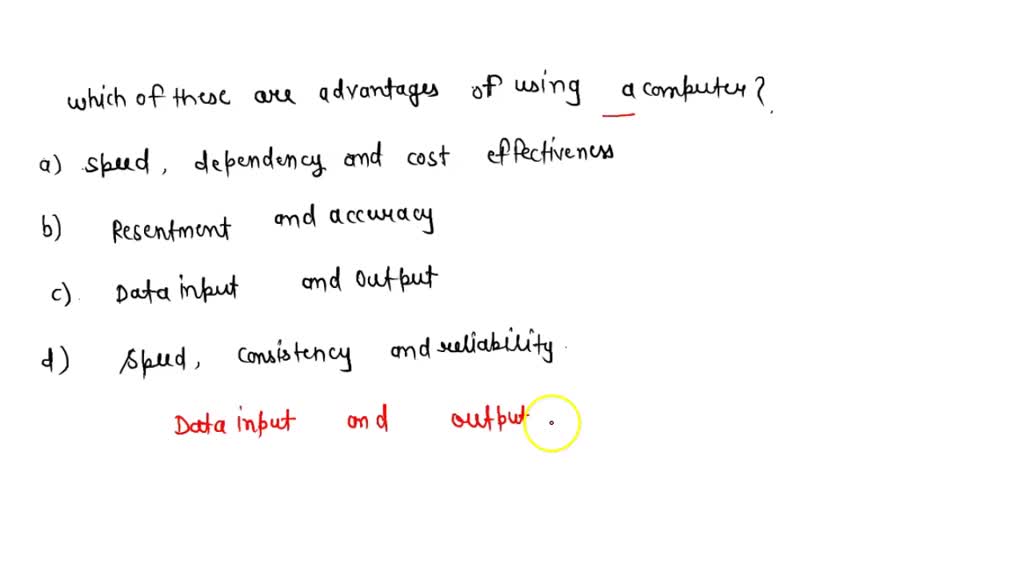 which of these are advantages of using a computer?
a) speed, dependency and cost effectiveness
b) Resentment and accuracy
c). Data input and output
d) speed, consistency and reliability.
Data input and output